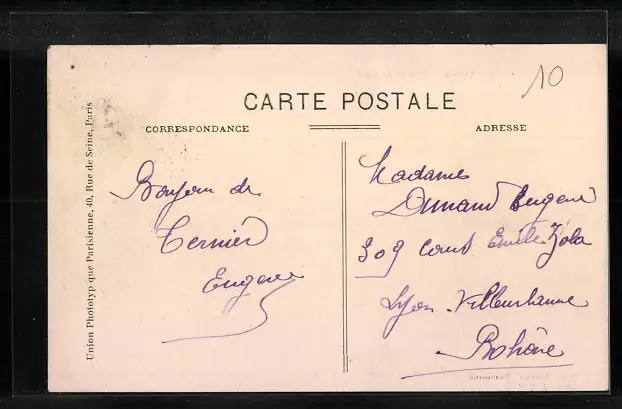 10
CARTE POSTALE
CORRESPONDANCE
ADRESSE
Union Phototyp que Parisienne, 40, Rue de Seine, Paris
Bonjour de
Ternier
Eugene
Madame
Dunand Eugene
309 Cours Emile Zola
Lyon - Villeurbanne
Rhône